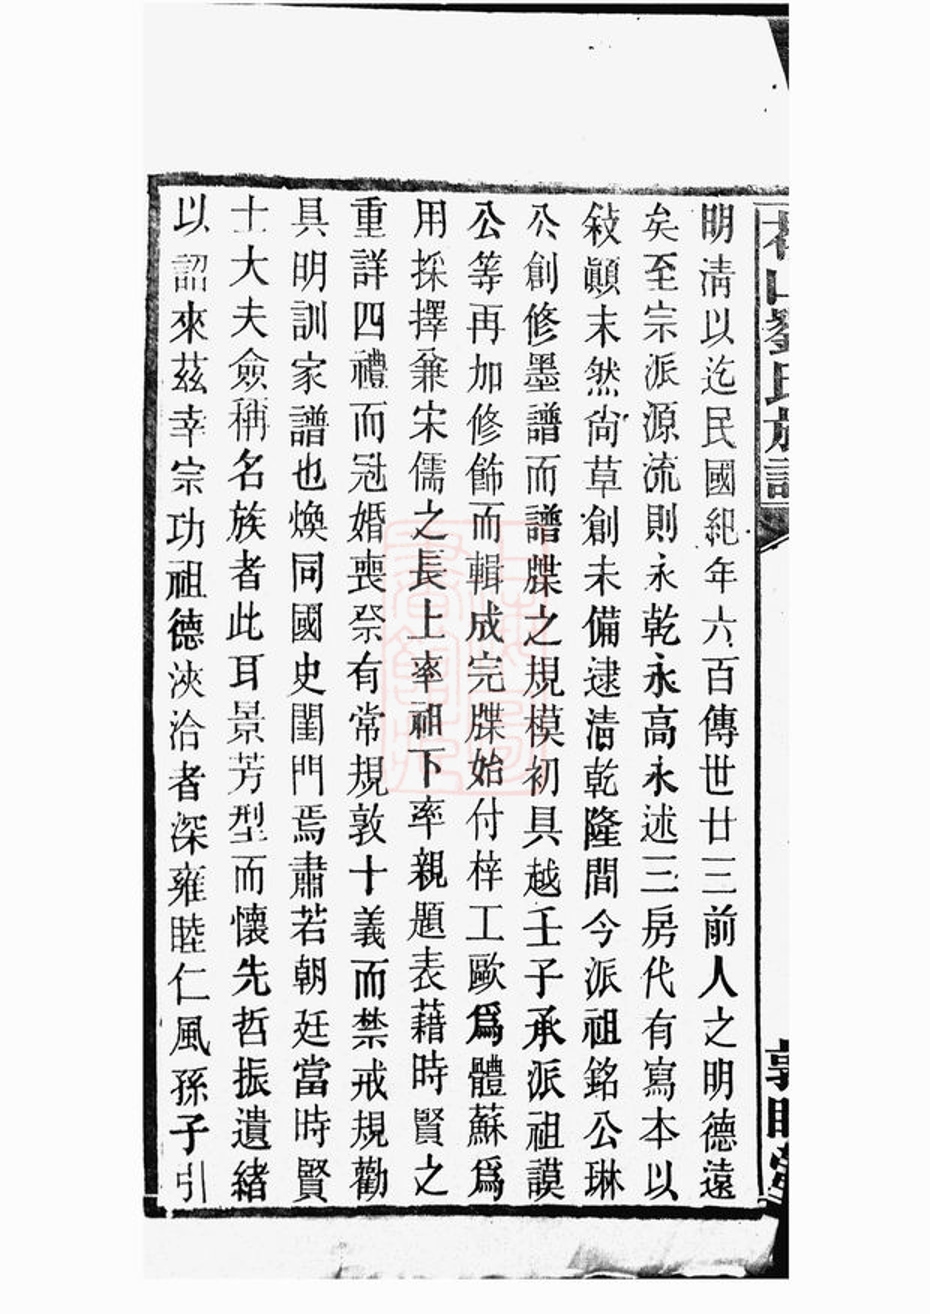 明清以迄民國紀年六百傳世廿三前人之明德遠
矣至宗派源流則永乾永高永述三房代有寫本以
敍顚末然尙草創未備逮淸乾隆間今派祖銘公琳
公創修墨譜而譜牒之規模初具越壬子承派祖謨
公等再加修飾而輯成完牒始付梓工歐爲體蘇爲
用採擇兼宋儒之長上率祖下率親題表藉時賢之
重詳四禮而冠婚喪祭有常規敦十義而禁戒規勸
具明訓家譜也煥同國史閨門焉肅若朝廷當時賢
士大夫僉稱名族者此耳景芳型而懷先哲振遺緒
以詔來茲幸宗功祖德浹洽者深雍睦仁風孫子引
山劉氏族譜
敦睦堂